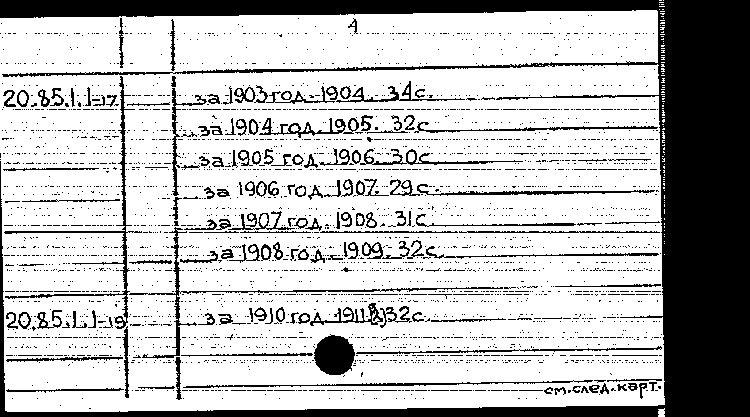 4
20.85.1.1-17 за 1903 год. 1904. 34с.
за 1904 год. 1905. 32с
за 1905 год. 1906. 30с
за 1906 год. 1907. 29с.
за 1907 год. 1908. 31с.
за 1908 год. 1909. 32с.
20.85.1.1-19 за 1910 год. 1911. 32с.
см. след. карт.